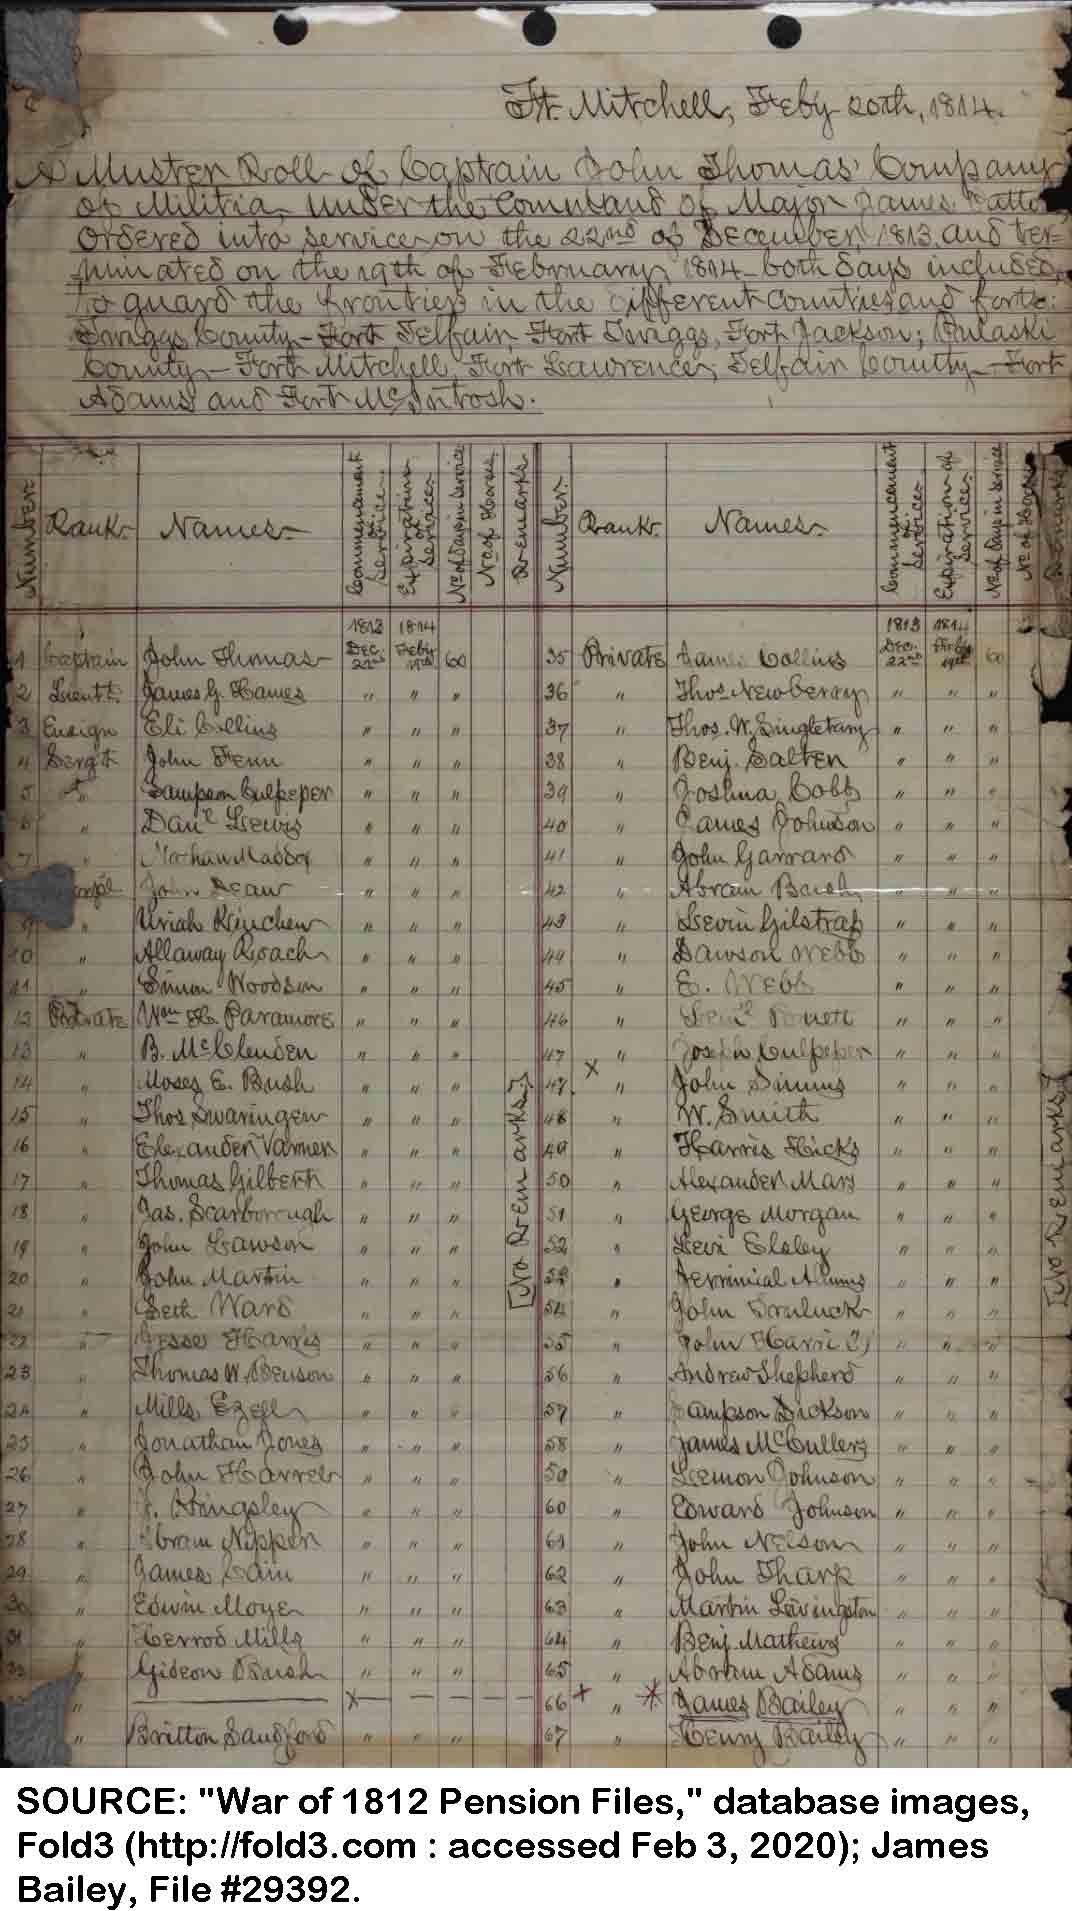 Ft. Mitchell, Feby 20th, 1814.
A Muster Roll of Captain John Thomas' Company
of Militia, under the Command of Major James
ordered into service on the 22nd of December, 1813, and ter-
minated on the 19th of February, 1814—both days included,
to guard the frontier in the different Counties and forts:
Twiggs County—Fort Telfair, Fort Twiggs, Fort Jackson; Pulaski
County—Fort Mitchell, Fort Lawrence; Telfair County—Fort
Adams and Fort McIntosh.
Number Rank Names Commencement of Service Expiration of Service No. of Days in Service No. of Horses Remarks Number Rank Names Commencement of Service Expiration of Service No. of Days in Service No. of Horses Remarks
1 Captain John Thomas 1813 Dec. 22nd 1814 Feby 19th 60 35 Private James Collins 1813 Dec. 22nd 1814 Feby 19th 60
2 Lieut. James G. Hames " " " 36 " Thos Newberry " " "
3 Ensign Eli Collins " " " 37 " Thos. W. Singletary " " "
4 Sergt John Fenn " " " 38 " Benj. Salten " " "
5 " Sampson Culpeper " " " 39 " Joshua Cobb " " "
6 " Danl Lewis " " " 40 " James Johnson " " "
7 " Nathan Maddox " " " 41 " John Garrard " " "
John Dean " " " 42 " Abram Brush " " "
9 Uriah Kinchen " " " 43 " Levin Gilstrap " " "
10 " Allaway Roach " " " 44 " Dawson Webb " " "
11 " Simon Woodson " " " 45 " E. Webb " " "
12 Private Wm H. Paramore " " " 46 " " " "
13 " B. McClenden " " " 47 " Joseph Culpeper " " "
14 " Moses E. Bush " " " 47 X " John Simms " " "
15 " Thos Swaringen " " " 48 " W. Smith " " "
16 " Elexander Varner " " " 49 " Harris Hicks " " "
17 " Thomas Gilbert " " " 50 " Alexander Mars " " "
18 " Jas. Scarborough " " " 51 " George Morgan " " "
19 " John Lawson " " " 52 " Levi Elsley " " "
20 " John Martin " " " 53 " " " "
21 " Seth Ward " " " 54 " John " " "
22 " Jesse Harris " " " 55 " John Harri(?) " " "
23 " Thomas W. Benson " " " 56 " Andrew Shepherd " " "
24 " Mills Ezell " " " 57 " Sampson Dickson " " "
25 " Jonathan Jones " " " 58 " James McCullers " " "
26 " John Harrel " " " 59 " Lemon Johnson " " "
27 " Kingsley " " " 60 " Edward Johnson " " "
28 " Abram Nipper " " " 61 " John Nelson " " "
29 " James Cain " " " 62 " John Tharp " " "
30 " Edwin Moyer " " " 63 " Martin Levingston " " "
31 " Herrod Mills " " " 64 " Benj. Mathews " " "
32 " Gideon Brush " " " 65 " Abram Adams " " "
" X 66 + " * James Bailey " " "
" Britton Sandford " " " 67 " Henry Bailey " " "
[No Remarks.]
[No Remarks]
SOURCE: "War of 1812 Pension Files," database images,
Fold3 (http://fold3.com : accessed Feb 3, 2020); James
Bailey, File #29392.